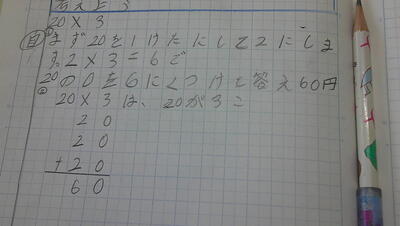 考えよう
20×3
自 まず20を1けたにして2にしま
す。2×3=6で
20の0を6にくつけて答え60円
20×3は、20が3こ
20
20
+20
60